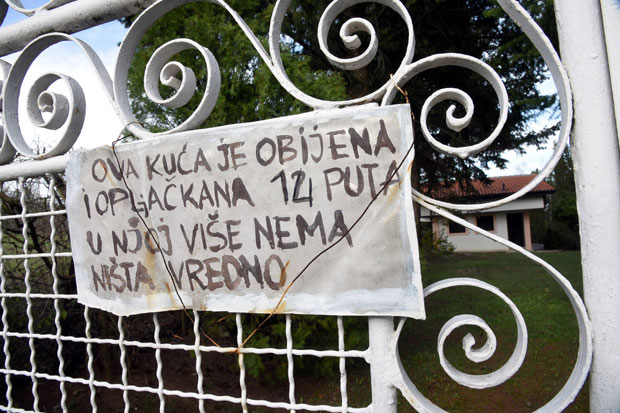 OVA KUĆA JE OBIJENA
I OPLJAČKANA 14 PUTA
U NJOJ VIŠE NEMA
NIŠTA VREDNO